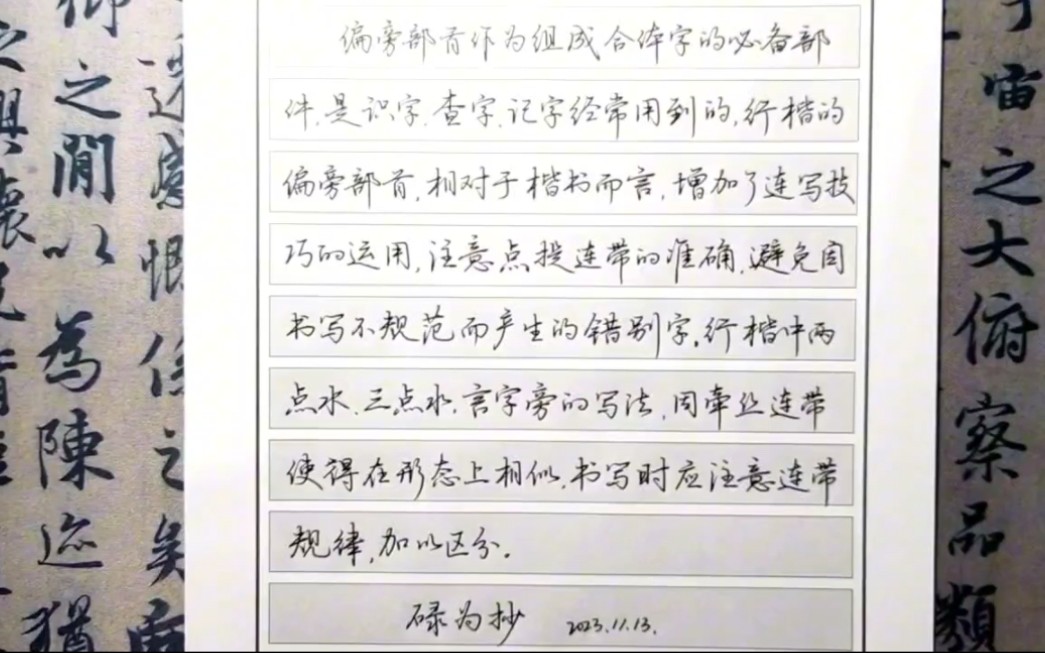 偏旁部首作为组成合体字的必备部
件,是识字、查字、记字经常用到的,行楷的
偏旁部首,相对于楷书而言,增加了连写技
巧的运用,注意点提连带的准确,避免因
书写不规范而产生的错别字。行楷中两
点水、三点水、言字旁的写法,因牵丝连带
使得在形态上相似,书写时应注意连带
规律,加以区分。
碌为抄 2023.11.13.
宙之大俯察品類
之閒以為陳迹猶
感恨係之矣